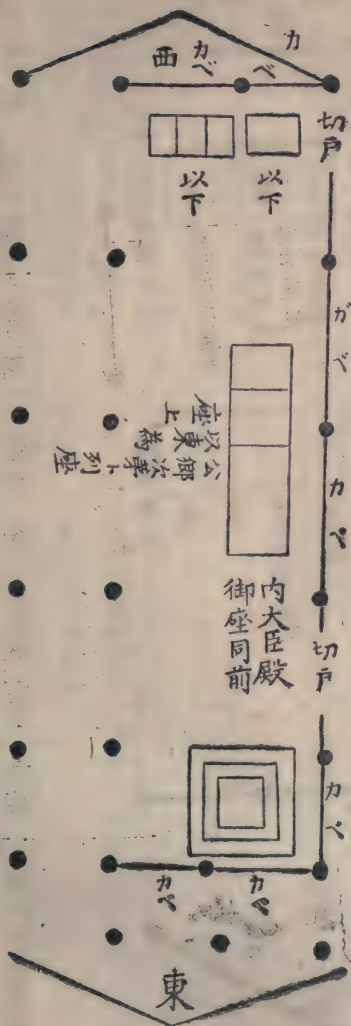 カベ
西
カベ
切戸
以下
以下
カベ
カベ
公郷次第ト列座
以東為座上
内大臣殿
御座同前
切戸
カベ
カベ
カベ
東